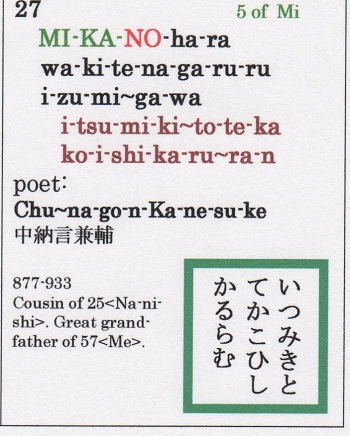 27
5 of Mi
MI-KA-NO-ha-ra
wa-ki-te-na-ga-ru-ru
i-zu-mi~ga-wa
i-tsu-mi-ki~to-te-ka
ko-i-shi-ka-ru~ra-n
poet:
Chu~na-go-n-Ka-ne-su-ke
中納言兼輔
877-933
Cousin of 25<Na-ni-
shi>. Great grand-
father of 57<Me>.
いつみきと
てかこひし
かるらむ